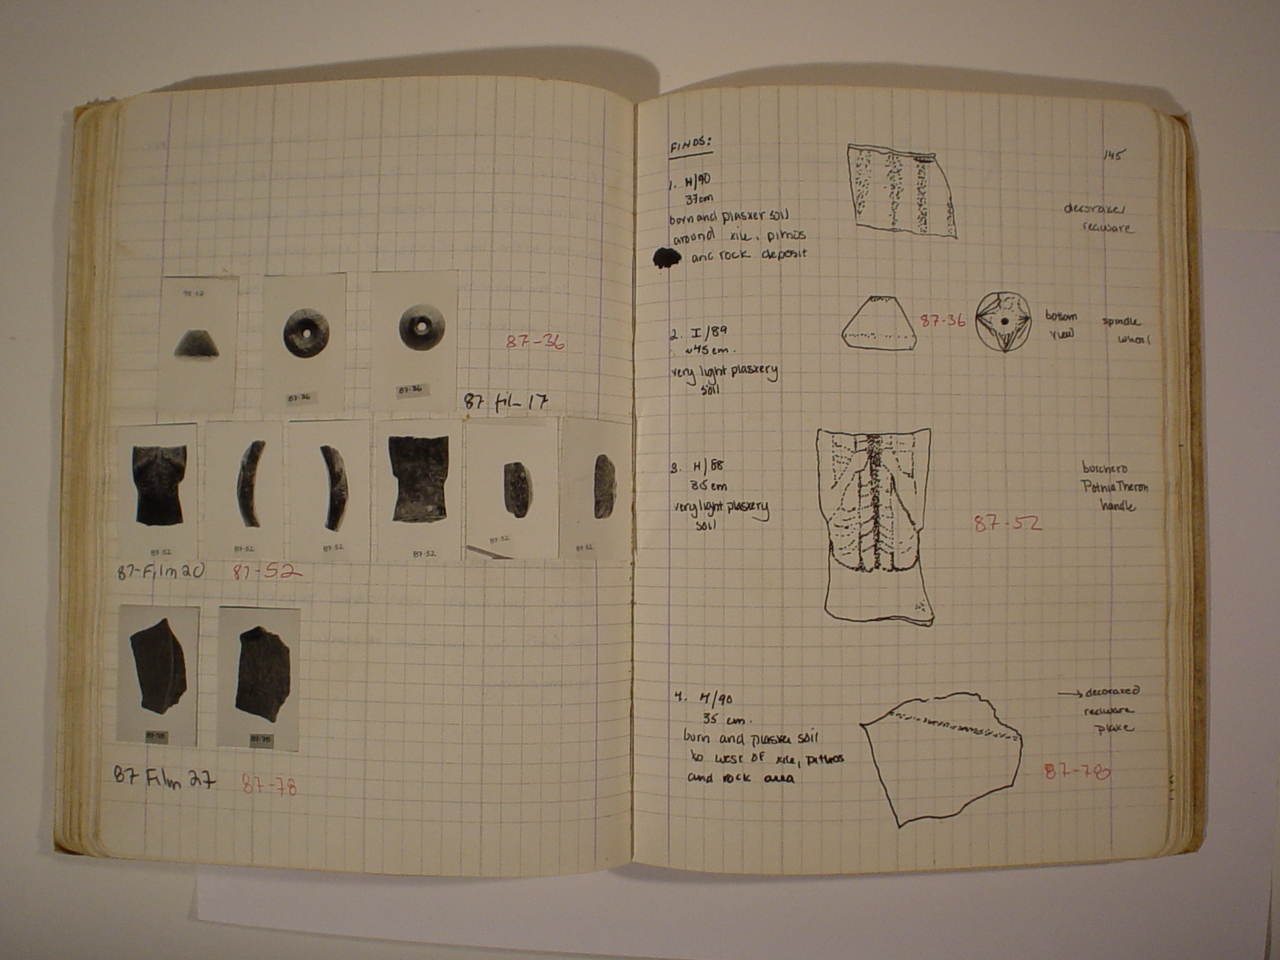 87-36
87-36
87-36
87 Film 17
87-52
87-52
87-52
87-52
87-52
87-Film 20 87-52
87-78
87-78
87 Film 27 87-78
FINDS:
145
1. H/90
37cm
burn and plaster soil
around tile, pithos
and rock deposit
decorated
redware
2. I/89
~45 cm.
very light plastery
soil
87-36
bottom
view
spindle
whorl
3. H/88
35 cm
very light plastery
soil
bucchero
Potnia Theron
handle
87-52
4. H/90
35 cm.
burn and plaster soil
to west of tile, pithos
and rock area
→ decorated
redware
plate
87-78